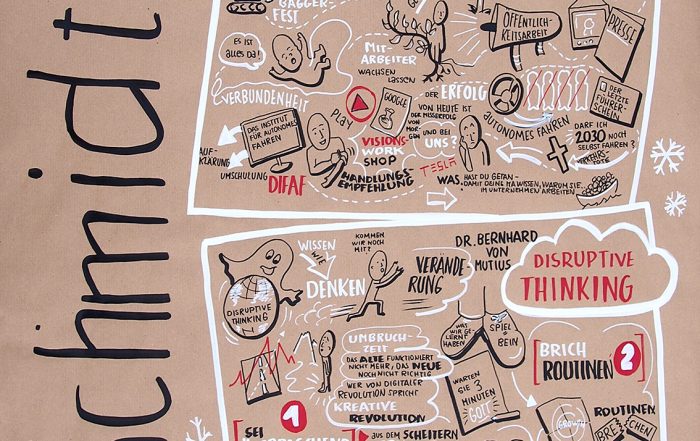 chmidt
BAGGER-
FEST
ES IST
ALLES DA!
MIT-
ARBEITER
WACHSEN
LASSEN
ÖFFENTLICH-
KEITSARBEIT
PRESSE
DER LETZTE
FÜHRER-
SCHEIN
VERBUNDENHEIT
PLAY
GOOGLE
DER ERFOLG
VON HEUTE IST
DER MISSERFOLG
VON MOR-
GEN
UND BEI
UNS?
AUTONOMES FAHREN
DARF ICH
2030 NOCH
SELBST FAHREN?
VERKEHRS-
TOTE
DAS INSTITUT
FÜR AUTONOMES
FAHREN
AUF-
KLÄRUNG
UMSCHULUNG
DIFAF
VISIONS
WORK
SHOP
HANDLUNGS-
EMPFEHLUNG
TESLA
WAS
HAST DU GETAN-
DAMIT DEINE MA WISSEN, WARUM SIE..
IM UNTERNEHMEN ARBEITEN
WISSEN
WIE
DENKEN
KOMMEN
WIR NOCH
MIT?
VERÄNDE-
RUNG
DR. BERNHARD
VON
MUTIUS
DISRUPTIVE
THINKING
DISRUPTIVE
THINKING
WAS WIR
GELERNT
HABEN
SPIEL=
BEIN
UMBRUCH-
ZEIT
DAS ALTE FUNKTIONIERT
NICHT MEHR, DAS NEUE
NOCH NICHT RICHTIG
WER VON DIGITALER
REVOLUTION SPRICHT
KREATIVE
REVOLUTION
AUS DEM SCHEITERN
WARTEN SIE 3
MINUTEN
GOTT
BRICH
ROUTINEN 2
1
SEI
GROWTH
ROUTINEN
BRECHEN